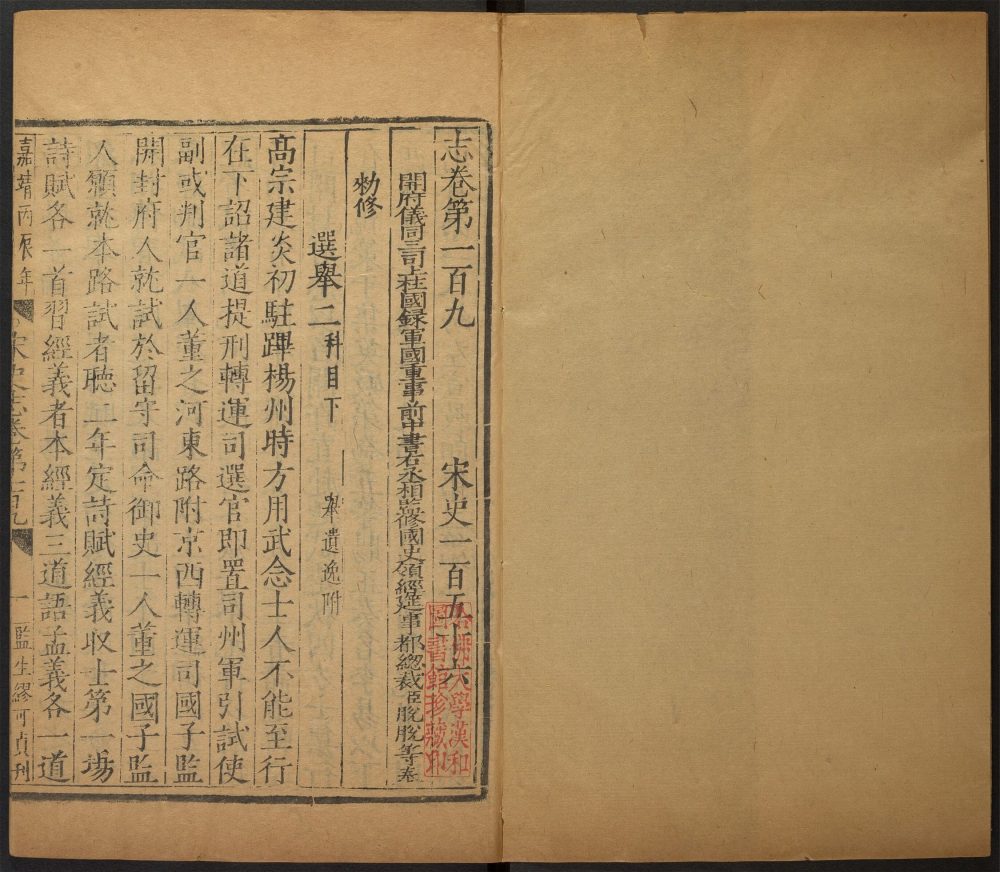 志卷第一百九　宋史一百五十六
開府儀同三司上柱國錄軍國重事前中書右丞相監修國史領經筵事都總裁臣脫脫等奉
勑修
選舉二科目下　舉遺逸附
高宗建炎初駐蹕楊州時方用武念士人不能至行
在下詔諸道提刑轉運司選官即置司州軍引試使
副或判官一人董之河東路附京西轉運司國子監
開封府人就試於留守司命御史一人董之國子監
人願就本路試者聽二年定詩賦經義取士第一場
詩賦各一首習經義者本經義三道語孟義各一道
嘉靖丙辰年　宋史志卷第一百九　一　監生繆可貞刊
哈佛大學漢和
圖書館珍藏印